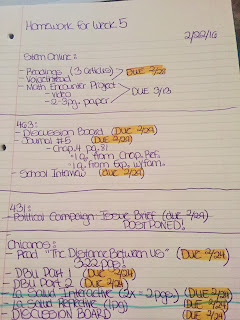 Homework for Week 5
2/22/16
Stem Online:
- Readings (3 articles)
DUE 2/28
- Voicethread
- Math Encounter Project
- video
DUE 3/13
- 2-3pg. paper
463:
- Discussion Board (DUE 2/29)
- Journal #5 (DUE 2/29)
- Chap. 4 pg. 81
- School Interview (DUE 2/29)
431:
- Political Campaign Issue Brief (due 2/29)
POSTPONED!
Chicanos:
- Read "The Distance Between Us" (DUE 2/29)
322 pgs!
- DBU Part 1 (DUE 2/24)
- DBU Part 2 (DUE 2/29)
- La Salud Interactive (2x - 2pgs.) (DUE 2/29)
- La Salud Reflective (1pg) (DUE 2/29)
- DISCUSSION BOARD (DUE 2/29)